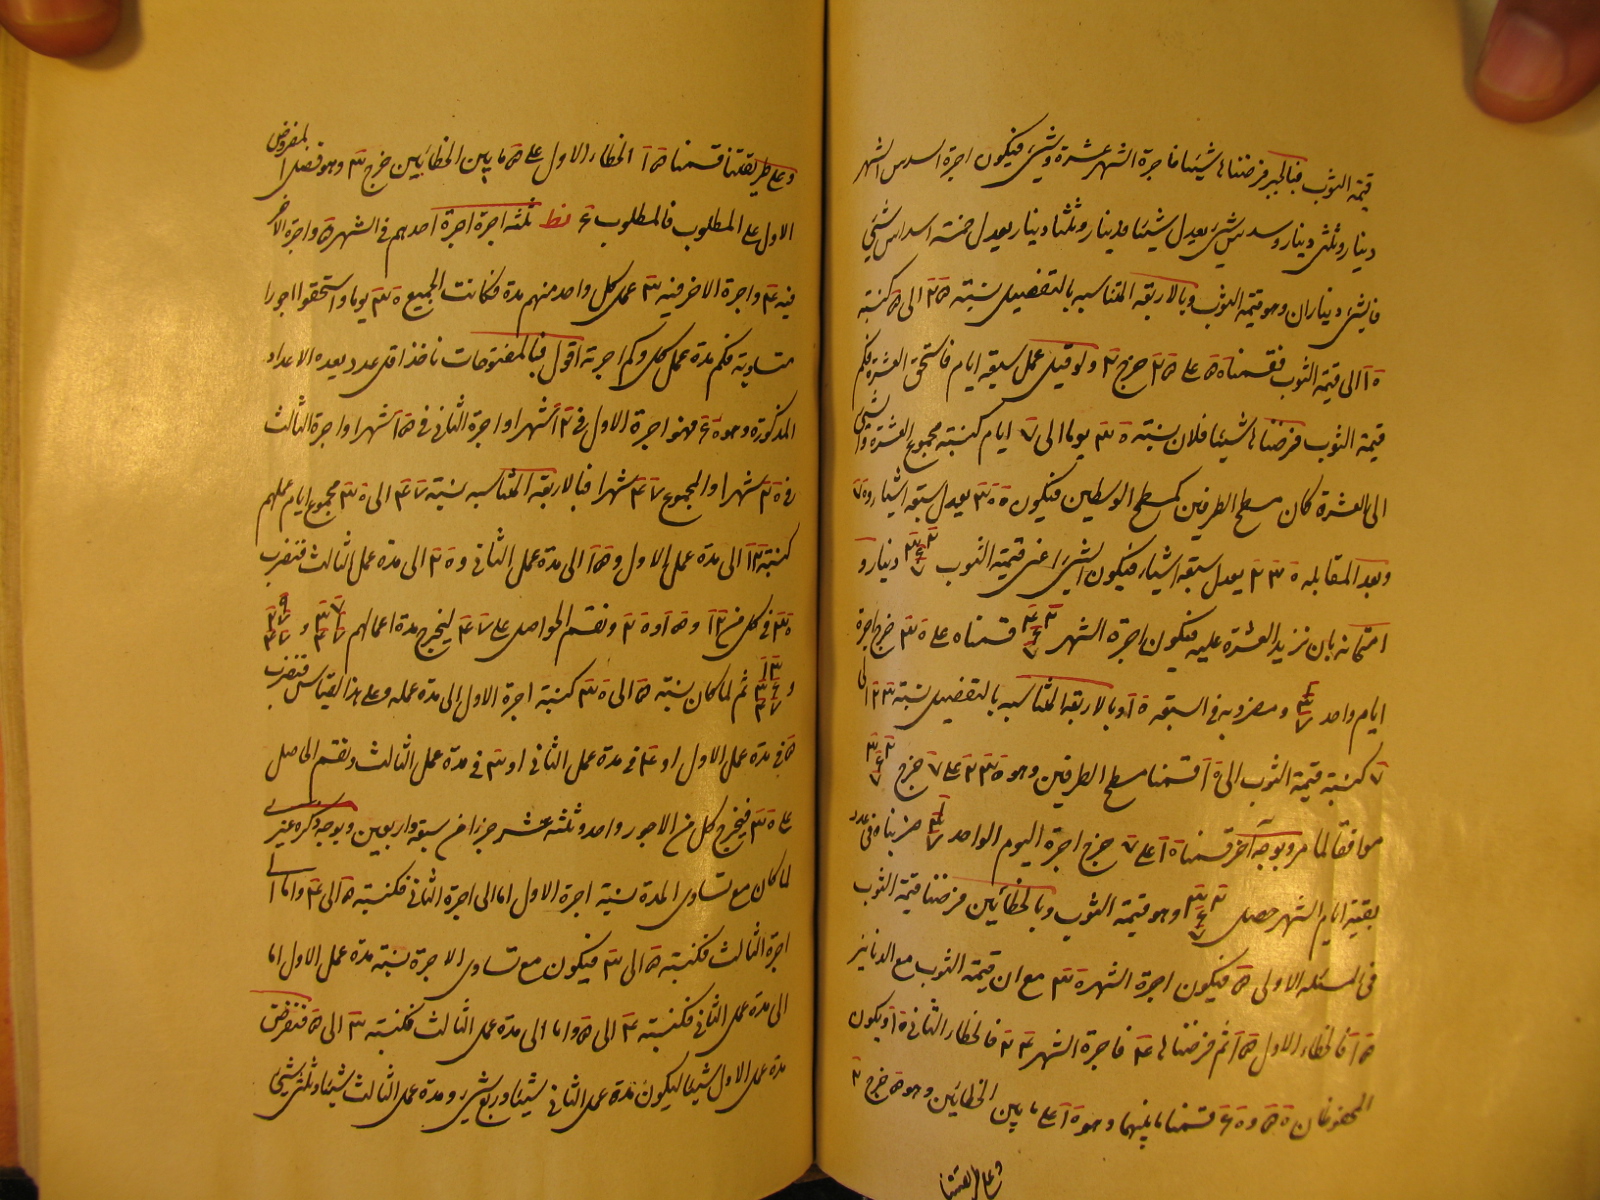 قيمة الثوب فبالجبر فرضناها شيئا فاجرة الشهر عشرة وشئ فيكون اجرة اسدس الشهر
دينار وثلثي دينار وسدس شئ يعدل شيئا فدينار وثلثا دينار يعدل خمسة اسداس شئ
فالشئ ديناران وهو قيمة الثوب وبالاربعة المتناسبه بالتفضيل نسبته ٢٥ الى ٥ كنسبة
١٠ الى قيمة الثوب فقسمنا ٥٠ على ٢٥ خرج ٢ ولو قيل عمل سبعة ايام فاستحق العشرة فكم
قيمة الثوب فرضناها شيئا فلان نسبته ٣٠ يوما الى ٧ ايام كنسبته مجموع العشرة والشئ
الى العشرة كان مسطح الطرفين كمسطح الوسطين فيكون ٣٠٠ يعدل سبعة اشياء و٧٠
وبعد المقابله ٢٣٠ يعدل سبعة اشياء فيكون الشئ اعني قيمة الثوب ٣٢ ٦ ٧ دينار و
امتحانه بان نزيد العشرة عليه فيكون اجرة الشهر ٤٢ ٦ ٧ قسمناه على ٣٠ خرج اجرة
ايام واحد ١ ٣ ٧ ومضروبه في السبعة ١٠ وبالاربعة المتناسبه بالتفضيل نسبة ٢٣ الى
٧ كنسبة قيمة الثوب الى ١٠ قسمنا مسطح الطرفين وهو ٢٣٠ على ٧ خرج ٣٢ ٦ ٧
موافقا لما مر وبوجه آخر قسمنا ١٠ على ٧ خرج اجرة اليوم الواحد ١ ٣ ٧ ضربناه في عدد
بقية ايام الشهر حصل ٣٢ ٦ ٧ وهو قيمة الثوب وبالخطائين فرضنا قيمة الثوب
في المسئله الاولى ٥ فيكون اجرة الشهر ٣٠ مع ان قيمة الثوب مع الدنانير
١٥ فالخطاء الاول ١٥ ثم فرضناها ٤ فاجرة الشهر ٢٤ فالخطاء الثاني ١٠ ويكون
المحفوظان ٥٠ و ٦٠ قسمنا ما بينهما وهو ١٠ على ما بين الخطائين وهو ٥ خرج ٢
وعلى طريقتنا
وعلى طريقتنا قسمنا ١٥ الخطاء الاول على ٥ ما بين الخطائين خرج ٣ وهو فضل المفروض
الاول على المطلوب فالمطلوب ٢ نط ثلثة اجرة اجرة احدهم في الشهر ٥ واجرة الاخر
فيه ٤ واجرة الاخر فيه ٣ عمل كل واحد منهم مدة فكانت الجميع ٣٠ يوما واستحقوا اجورا
متساوية فكم مدة عمل كل وكم اجرته اقول فبالمفتوحات ناخذ اقل عدد يعده الاعداد
المذكورة وهو ٦٠ فهو اجرة الاول في ١٢ شهرا واجرة الثاني في ١٥ شهرا واجرة الثالث
في ٢٠ شهرا والمجموع ٤٧ شهرا فبالاربعة المتناسبه نسبته ٤٧ الى ٣٠ مجموع ايام عملهم
كنسبة ١٢ الى مدة عمل الاول و ١٥ الى مدة عمل الثاني و ٢٠ الى مدة عمل الثالث فنضرب
٣٠ في كل من ١٢ و ١٥ و ٢٠ ونقسم الحواصل على ٤٧ ليخرج مدة اعمالهم ٧ ٣١ ٤٧ و ٩ ٢٧ ٤٧
و ١٢ ٣٦ ٤٧ ثم لما كان نسبته ٥ الى ٣٠ كنسبة اجرة الاول الى مدة عمله وعلى هذا القياس فنضرب
٥ في مدة عمل الاول او ٤ في مدة عمل الثاني او ٣ في مدة عمل الثالث ونقسم الحاصل
على ٣٠ فيخرج كل من الاجور واحد وثلثه عشر جزءا من سبعة واربعين وبوجه ذكره غيري
لما كان مع تساوي المدة نسبة اجرة الاول اما الى اجرة الثاني فكنسبة ٥ الى ٤ واما الى
اجرة الثالث فكنسبة ٥ الى ٣ فيكون مع تساوي الاجرة نسبة مدة عمل الاول اما
الى مدة عمل الثاني فكنسبة ٤ الى ٥ واما الى مدة عمل الثالث فكنسبة ٣ الى ٥ فنفرض
مدة عمل الاول شيئا ليكون مدة عمل الثاني شيئا وربع شئ ومدة عمل الثالث شيئا وثلثي شئ